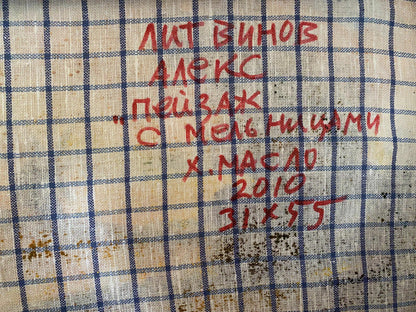 ЛИТВИНОВ
АЛЕКС
"ПЕЙЗАЖ
С МЕЛЬНИЦАМИ
Х. МАСЛО
2010
31X55